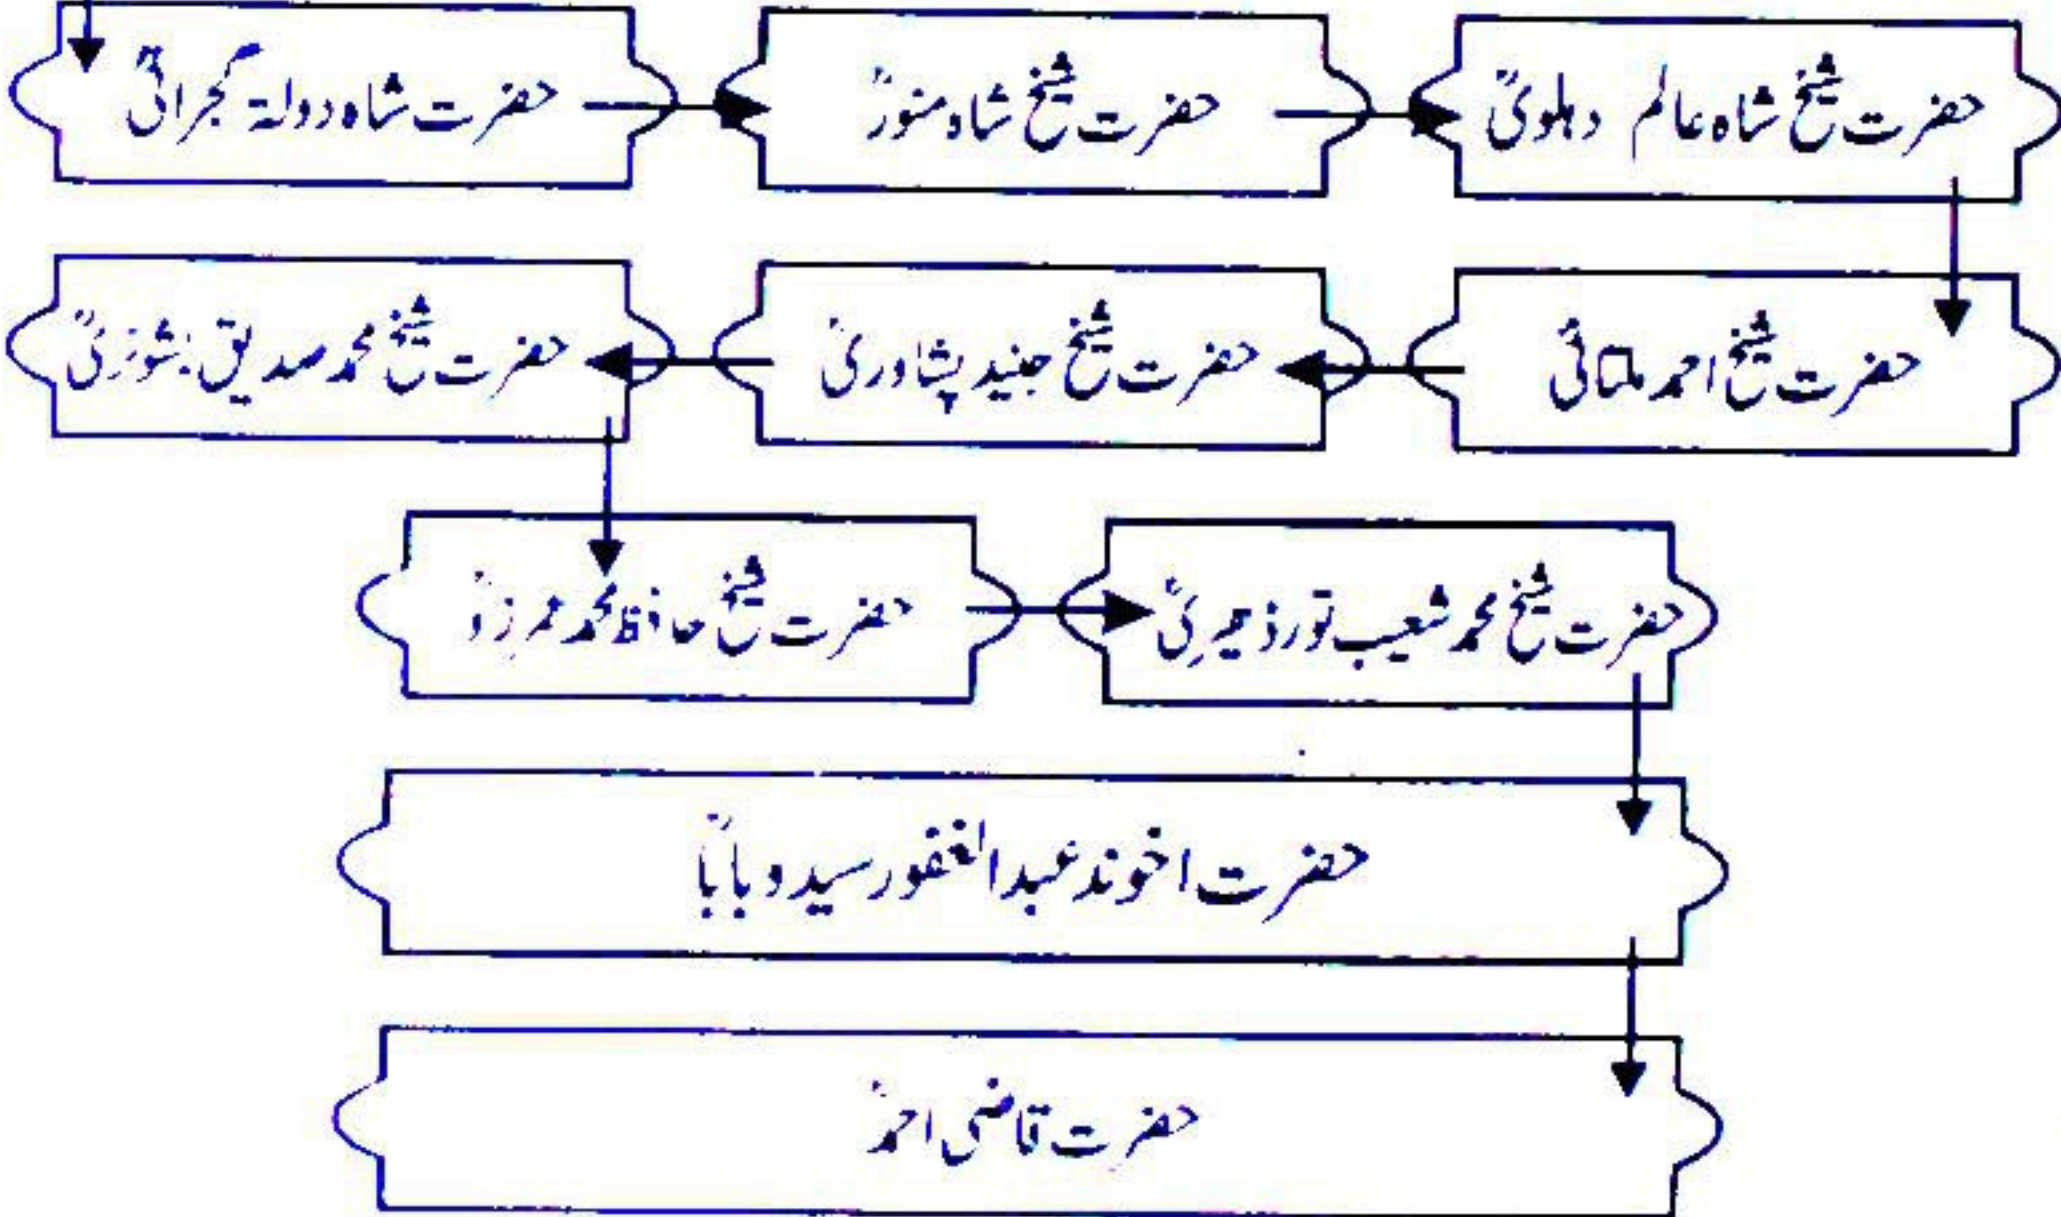 حضرت شاہ دولۃ گجراتیؒ
حضرت شیخ شاہ منورؒ
حضرت شیخ شاہ عالم دہلویؒ
حضرت شیخ احمد ملتانیؒ
حضرت شیخ جنید پشاوریؒ
حضرت شیخ محمد صدیق بشونریؒ
حضرت شیخ حافظ محمد عمرزئؒ
حضرت شیخ محمد شعیب تورڈھیریؒ
حضرت اخوند عبدالغفور سیدو باباؒ
حضرت قاضی احمدؒ